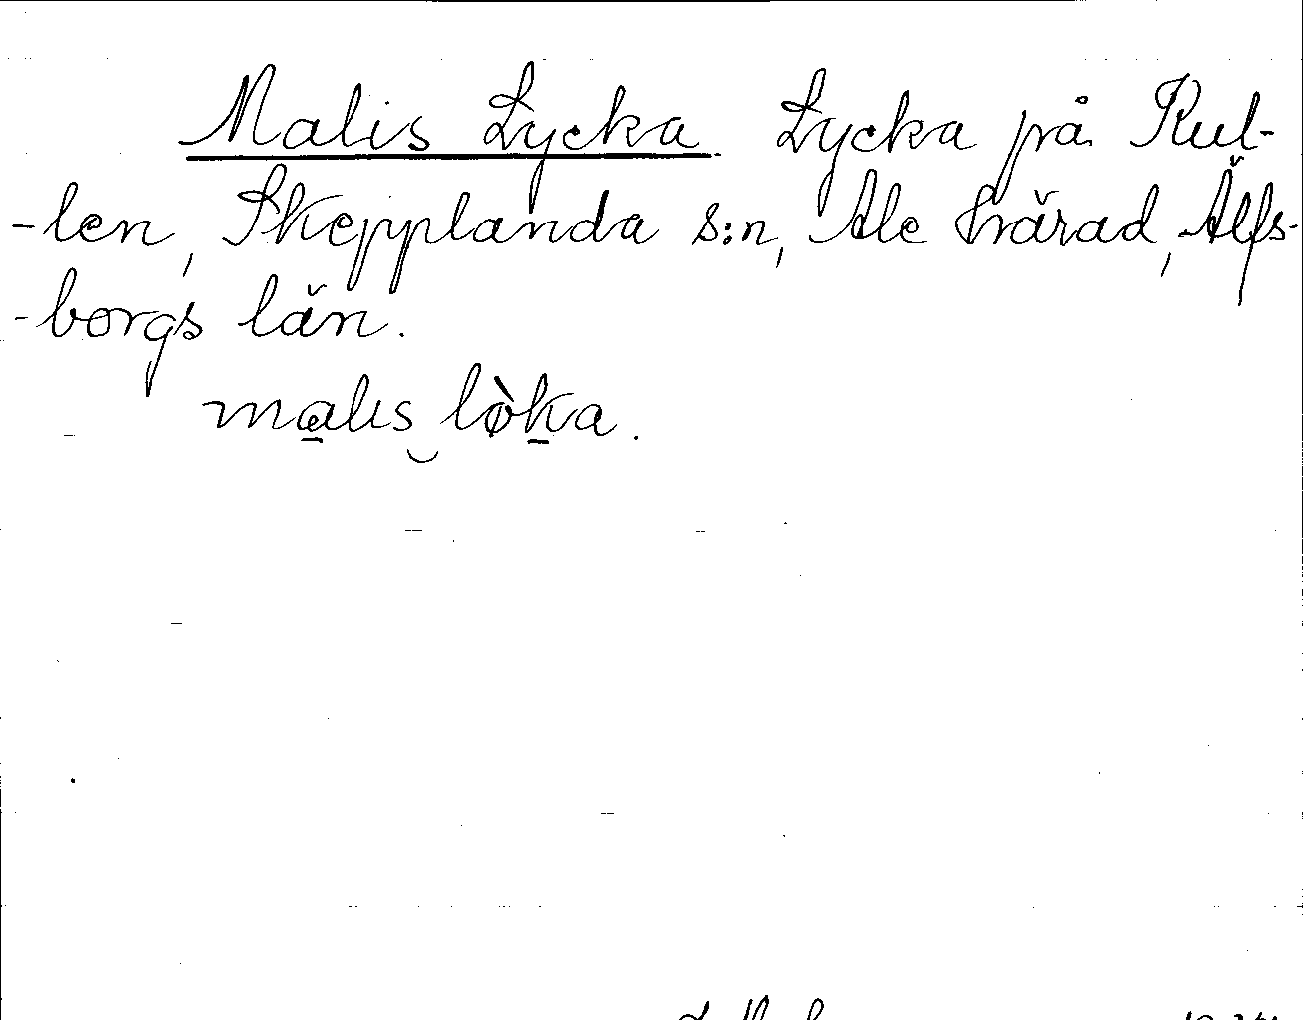 Malis Lycka. Lycka på Rul-
-len, Skepplanda s:n, Ale härad, Älfs-
-borgs län.
ma̱lıs ̮ lø̀ḵa.